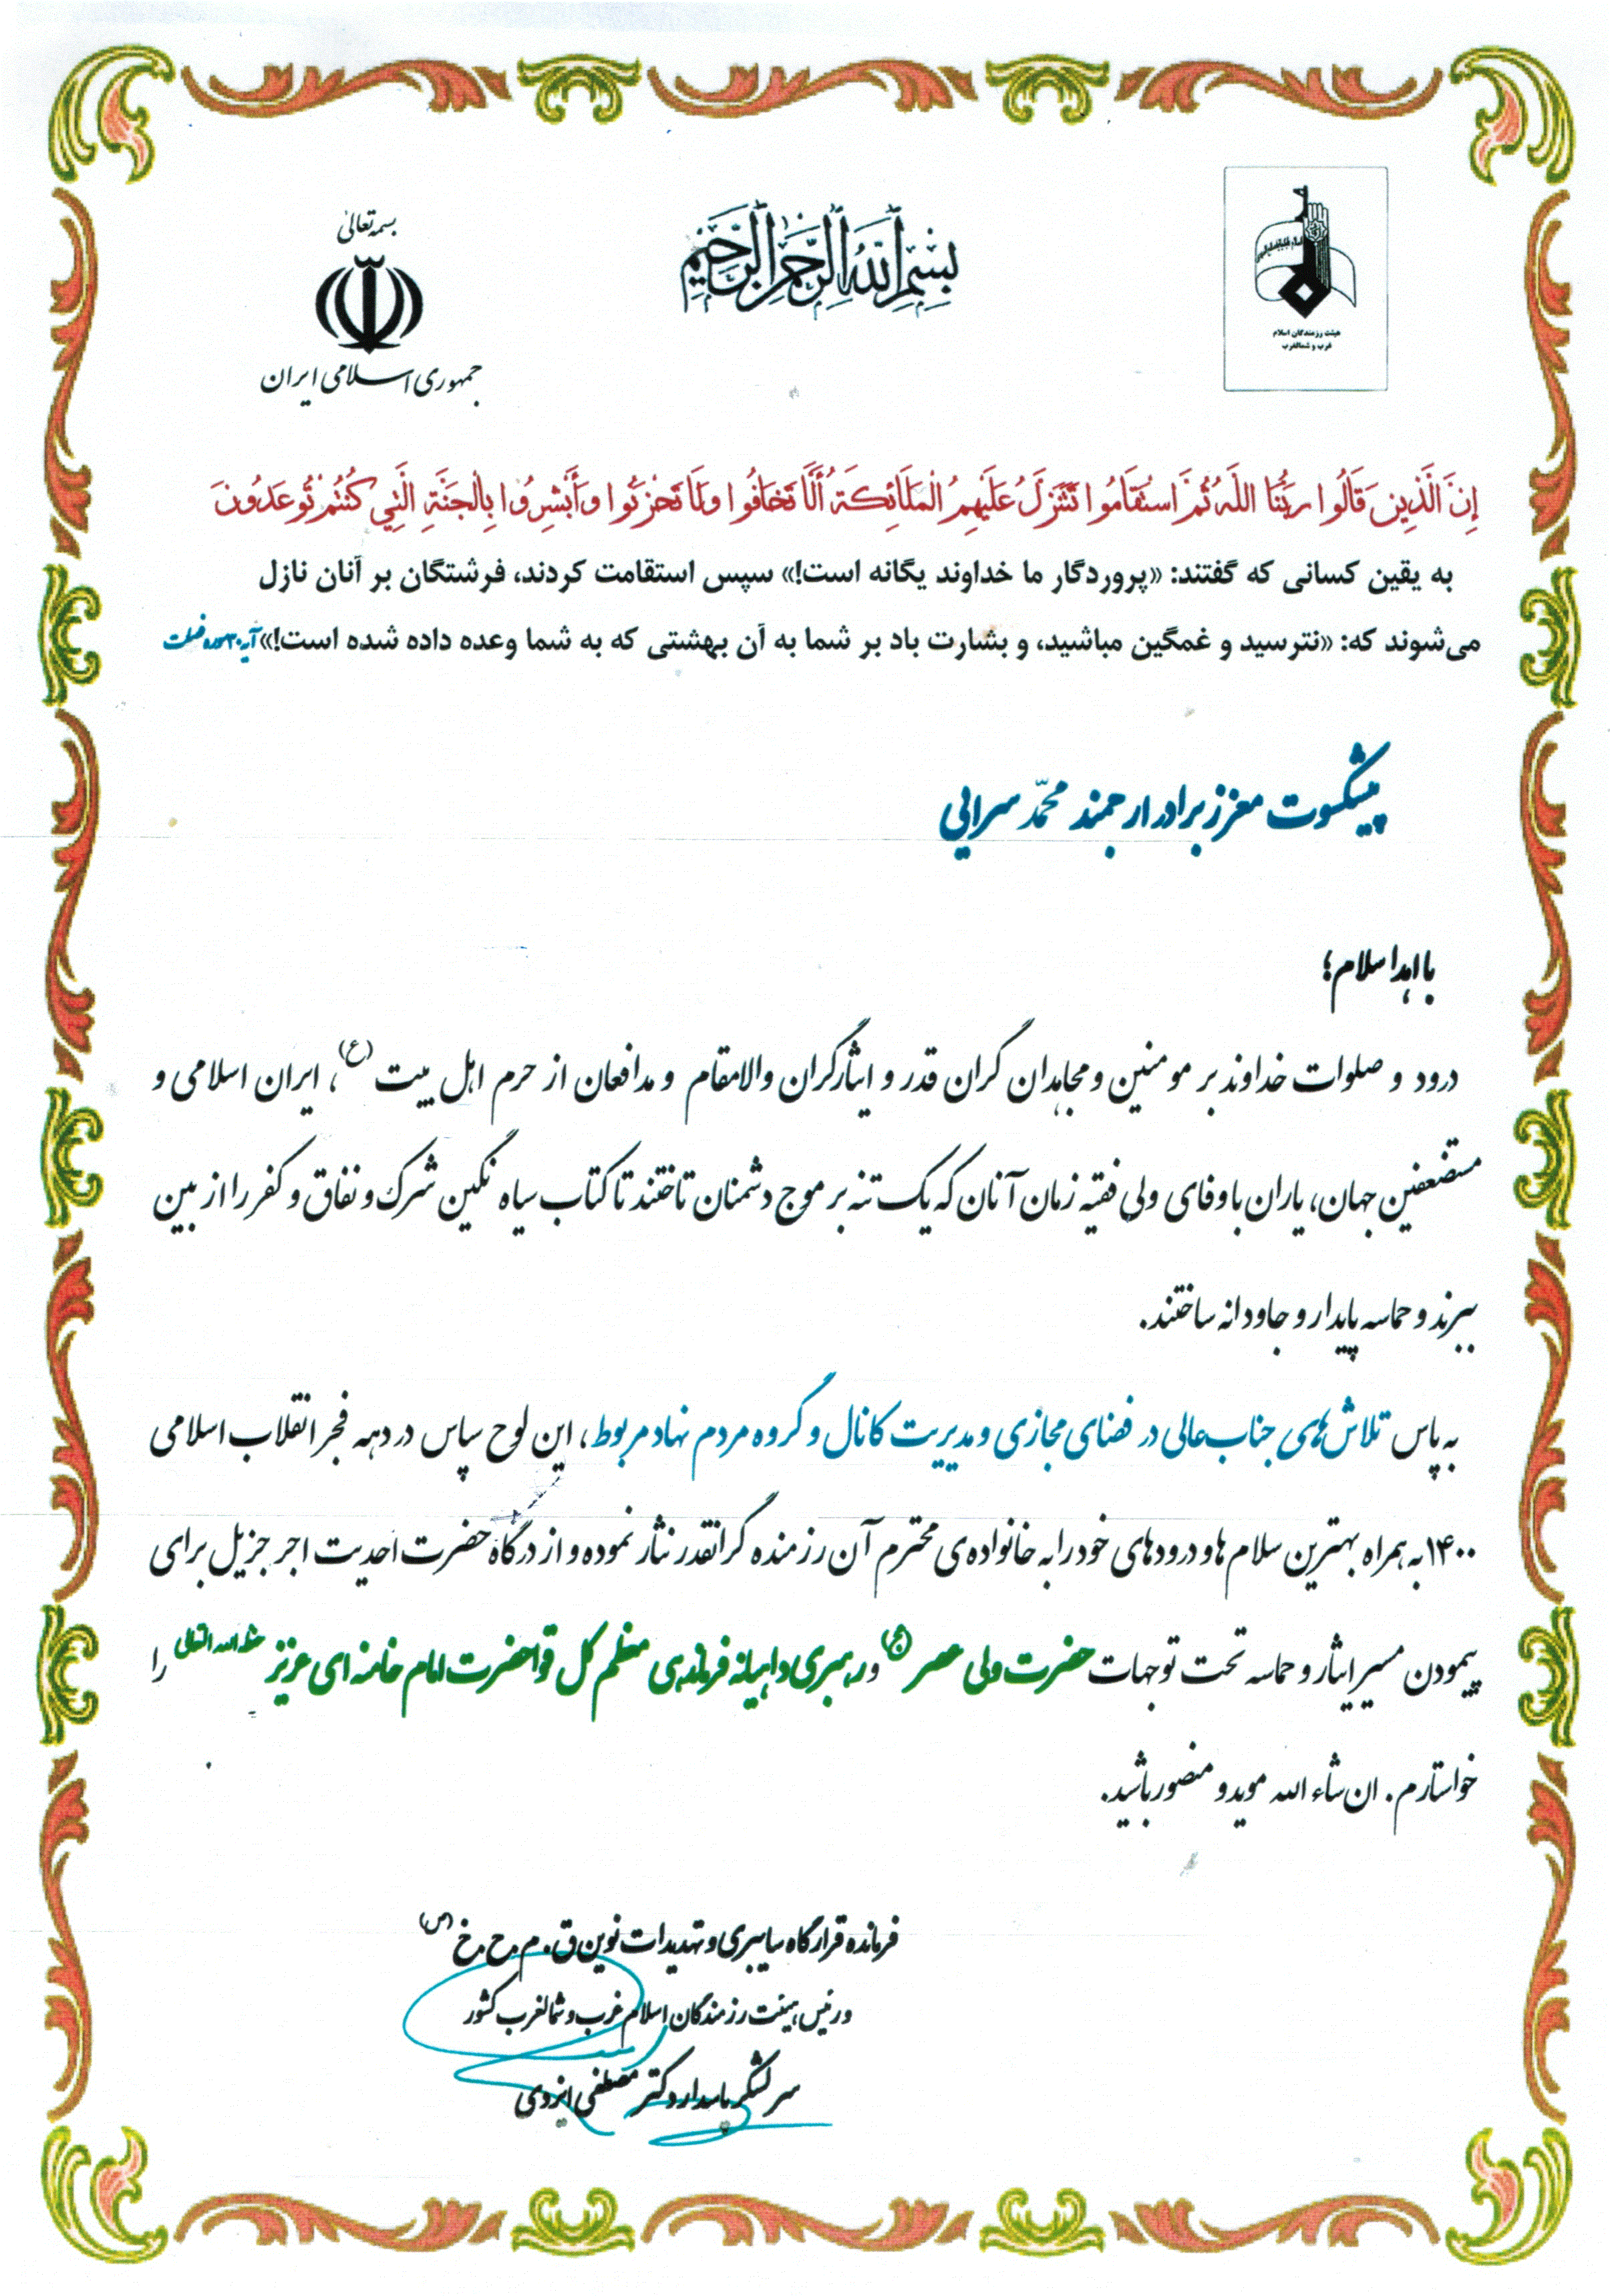 بسمه تعالی
جمهوری اسلامی ایران
بِسْمِ اللَّهِ الرَّحْمَنِ الرَّحِيمِ
هیئت رزمندگان اسلام
غرب و شمالغرب
إِنَّ الَّذِينَ قَالُوا رَبُّنَا اللَّهُ ثُمَّ اسْتَقَامُوا تَتَنَزَّلُ عَلَيْهِمُ الْمَلَائِكَةُ أَلَّا تَخَافُوا وَلَا تَحْزَنُوا وَأَبْشِرُوا بِالْجَنَّةِ الَّتِي كُنْتُمْ تُوعَدُونَ
به یقین کسانی که گفتند: «پروردگار ما خداوند یگانه است!» سپس استقامت کردند، فرشتگان بر آنان نازل
می‌شوند که: «نترسید و غمگین مباشید، و بشارت باد بر شما به آن بهشتی که به شما وعده داده شده است!» آیه ۳۰ سوره فصلت
پیشکسوت معزز برادر ارجمند محمّد سرابی
با اهدا سلام؛
درود و صلوات خداوند بر مومنین و مجاهدان گران قدر و ایثارگران والامقام و مدافعان از حرم اهل بیت (ع)، ایران اسلامی و
مستضعفین جهان، یاران باوفای ولی فقیه زمان آنان که یک تنه بر موج دشمنان تاختند تا کتاب سیاه ننگین شرک و نفاق و کفر را از بین
ببرند و حماسه پایدار و جاودانه ساختند.
به پاس تلاش‌های جناب‌عالی در فضای مجازی و مدیریت کانال و گروه مردم نهاد مربوط، این لوح سپاس در دهه فجر انقلاب اسلامی
۱۴۰۰ به همراه بهترین سلام ها و درودهای خود را به خانواده‌ی محترم آن رزمنده گرانقدر نثار نموده و از درگاه حضرت احدیت اجر جزیل برای
پیمودن مسیر ایثار و حماسه تحت توجهات حضرت ولی عصر (عج) و رهبری داهیانه فرماندهی معظم کل قوا حضرت امام خامنه ای عزیز حفظه الله التعالی را
خواستارم. ان شاء الله موید و منصور باشید.
فرمانده قرارگاه سایبری و تهدیدات نوین ق. م. ح. خ (ص)
و رئیس هیئت رزمندگان اسلام غرب و شمالغرب کشور
سرلشکر پاسدار دکتر مصطفی ایزدی